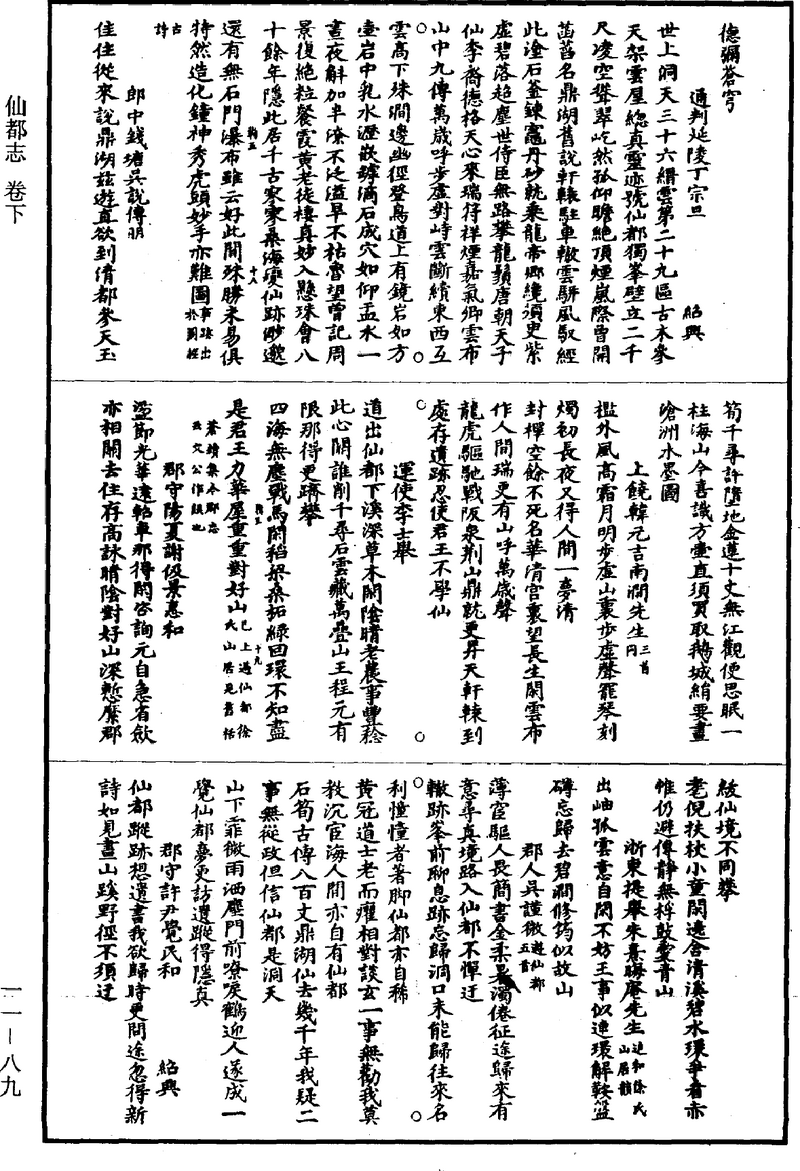 仙都志 卷下
德彌蒼穹
通判延陵丁宗旦 紹興
世上洞天三十六縉雲第二十九區古木參
天架雲屋總真靈迹號仙都獨峯壁立二千
尺凌空聳翠屹然孤仰瞻絶頂煙嵐際曾開
菡萏名鼎湖舊說軒轅駐車轍雲駢風馭經
此塗石釜鍊竈丹砂就乘龍帝鄉纔須臾紫
虛碧落超塵世侍臣無路攀龍鬚唐朝天子
仙李裔德格天心來瑞符祥煙嘉氣卿雲布
山中九傳萬歲呼步虛對峙雲斷續東西互
雲高下珠澗邊幽徑登鳥道上有鏡岩如方
壺岩中乳水瀝嵌罅滴石成穴如仰盂水一
晝夜斛加半潦不泛溢旱不枯魯望曾記周
景復絶粒餐霞黃老徒棲真妙入懸珠會八
十餘年隱此居千古寥寥桑海變仙跡渺邈
還有無石門瀑布雖云好此間殊勝未易俱
特然造化鍾神秀虎頭妙手亦難圖事跡出於圖經
古詩
郎中錢塘吳說傅明
佳佳從來說鼎湖茲遊直欲到清都參天玉
筍千尋許墮地金蓮十丈無江觀便思眠一
柱海山今喜識方壺直須買取鵝城絹要畫
滄洲水墨圖
上饒韓元吉南澗先生三首
檻外風高霜月明步虛山裏步虛聲罷琴刻
燭初長夜又得人間一夢清
封禪空餘不死名華清宮裏望長生閑雲布
作人間瑞更有山呼萬歲聲
龍虎驅馳戰阪泉荆山鼎就更昇天軒轅到
處存遺跡忍使君王不學仙
運使李士舉
道出仙都下溪深草木閑陰晴老農事豐稔
此心關誰削千尋石雲藏萬疊山王程元有
限那得更躋攀
四海無塵戰馬閑稻粱桑柘綠回環不知盡
是君王力華屋重重對好山已上過仙都徐氏山居見舊括
蒼續集
郡守陽夏謝伋景思和
盜節光華遠軺車那得閑咨詢元自急省斂
亦相關去住存高詠晴陰對好山深慙縻郡
紱仙境不同攀
耄倪扶杖小童閑遶舍清溪碧水環爭看亦
帷仍避俥靜無桴鼓愛青山
浙東提舉朱熹晦庵先生追和徐氏山居韻
出岫孤雲意自閑不妨王事似連環解鞍盤
礴忘歸去碧澗修筠似故山
郡人吳謹微遊仙都五首
薄宦驅人畏簡書金柔暑濁倦征途歸來有
意尋真境路入仙都不憚迂
轍跡峯前聊息跡忘歸洞口未能歸往來名
利憧憧者著脚仙都亦自稀
黃冠道士老而癯相對談玄一事無勸我莫
教沉宦海人間亦自有仙都
石筍古傳八百丈鼎湖仙去幾千年我疑二
事無從政但信仙都是洞天
山下霏微雨洒塵門前嘹唳鶴迎人遂成一
覺仙都夢更訪遺蹤得隱真
郡守許尹覺民和 紹興
仙都蹤跡想遺書我欲歸時更問途忽得新
詩如見畫山蹊野徑不須迂
一一—八九